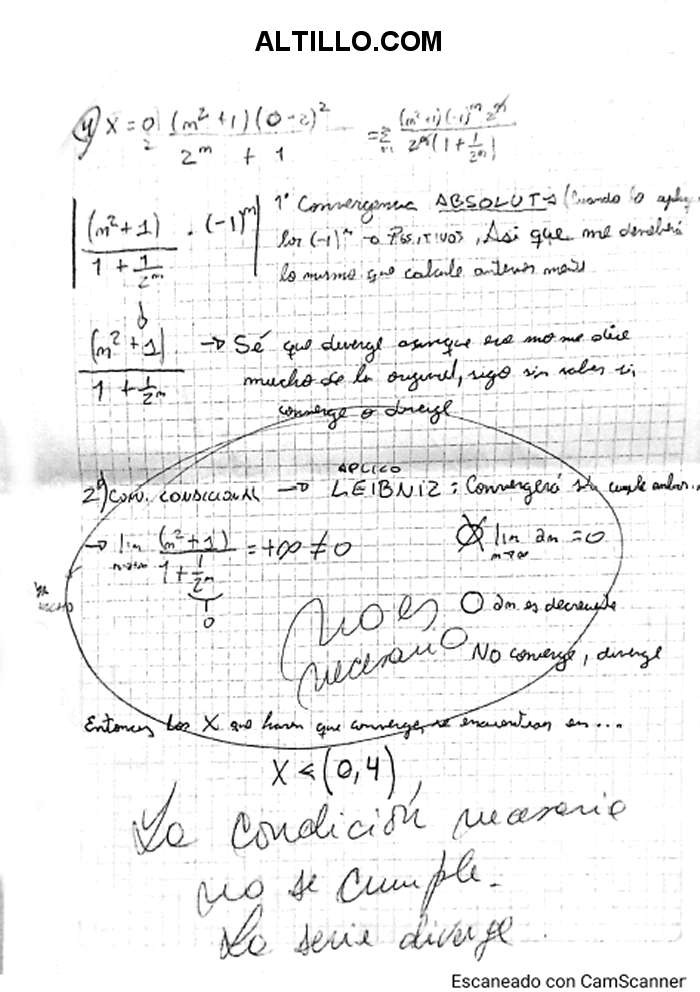 ALTILLO.COM
4) X = 0 (m² + 1)(0 - 2)² / 2^m + 1 = Σ (m²+1)(-1)^m 2^m / 2^m (1 + 1/2^m)
| (m² + 1) / 1 + 1/2^m · (-1)^m | 1° Convergencia ABSOLUTA (Cuando lo
los (-1)^m → POSITIVOS, Así que me devolverá
lo mismo que calcule
(m² + 1) / 1 + 1/2^m → Sé que diverge aunque eso no me dice
mucho de la original, sigo sin saber si
converge o diverge
2°) CONV. CONDICIONAL → APLICO LEIBNIZ: Convergerá si cumple
→ lim (m² + 1) / 1 + 1/2^m = +∞ ≠ 0
lim am = 0
m→∞
0
am es decreciente
No es
necesario
No converge, diverge
Entonces los X que hacen que converge, se encuentran en...
X < (0,4)
La condición necesaria
no se cumple.
La serie diverge.
Escaneado con CamScanner